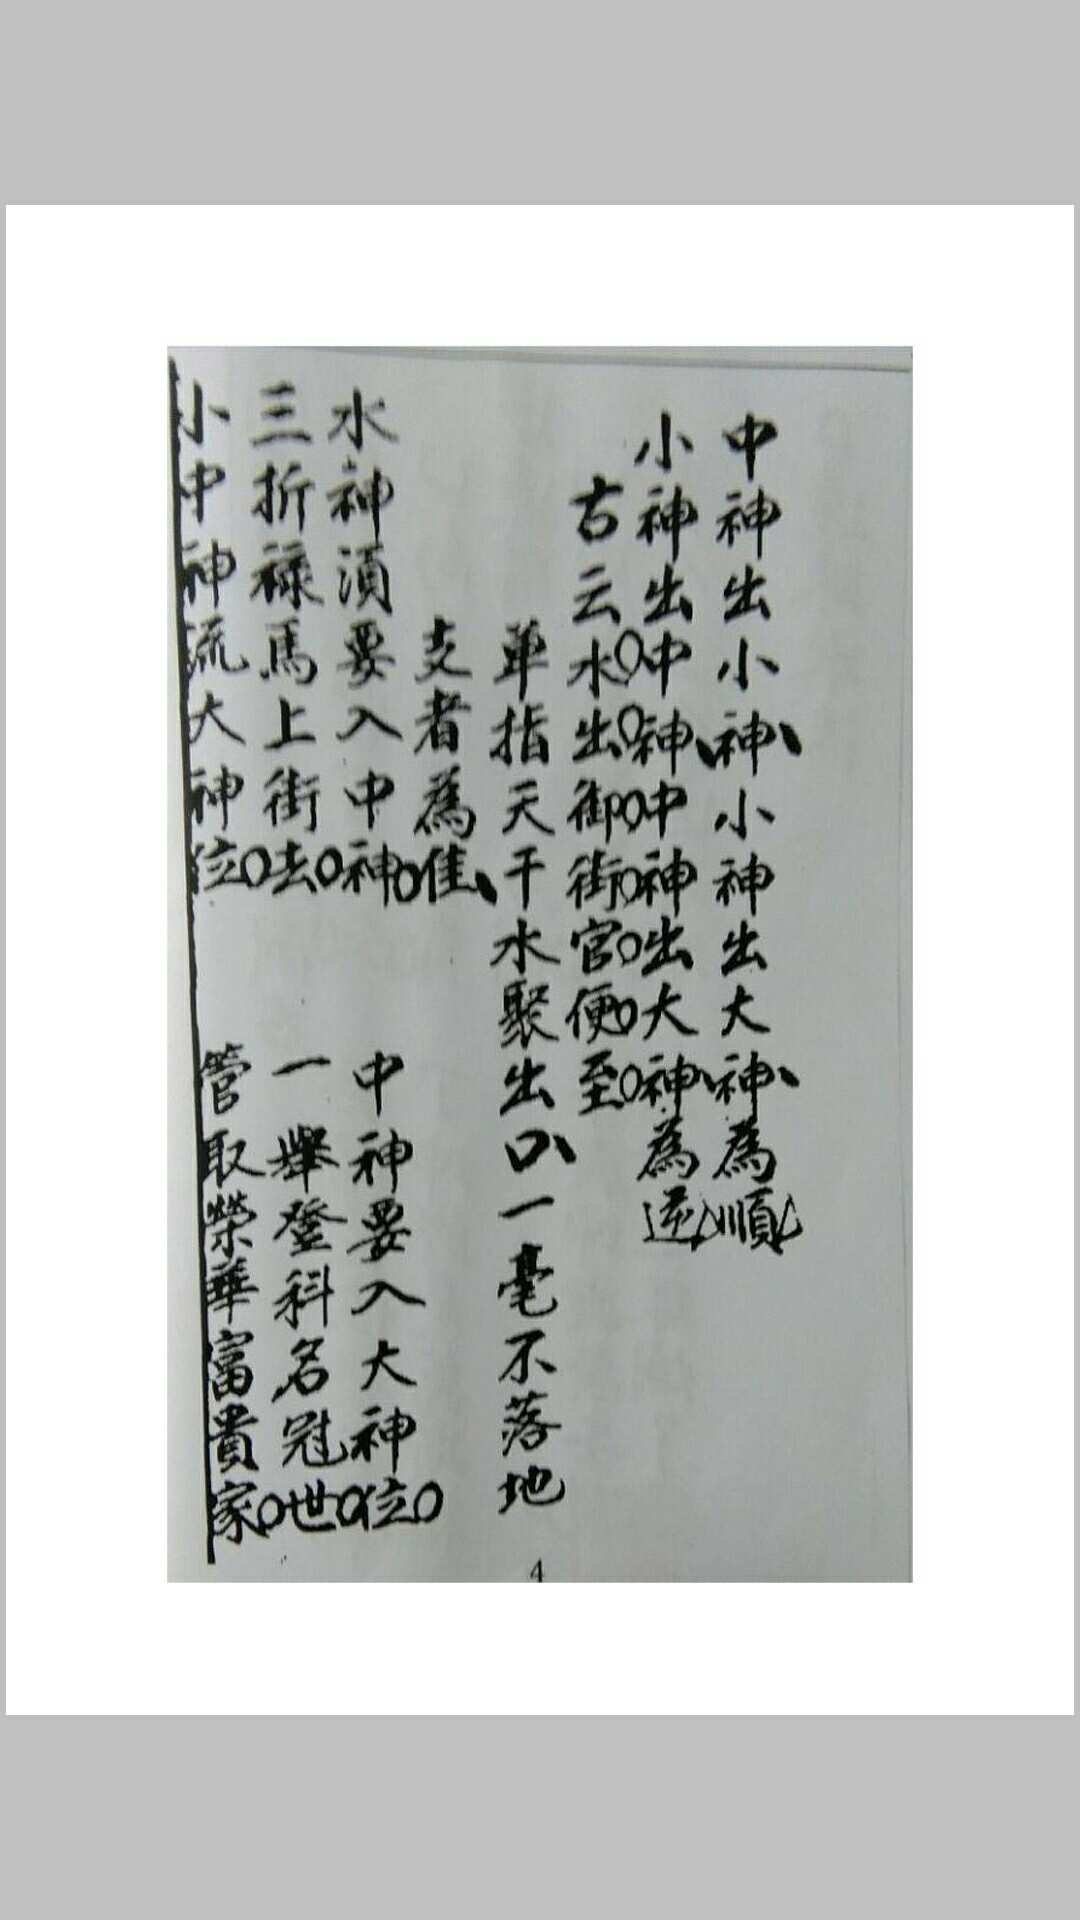 中神出小神、小神出大神、為順
小神出中神、中神出大神、為逆
古云水出御街官便至
單指天干水聚出口、一毫不落地
支者為佳、
水神須要入中神。中神要入大神位。
三折祿馬上街去。一舉登科名冠世。
小中神流大神位。管取榮華富貴家。
4